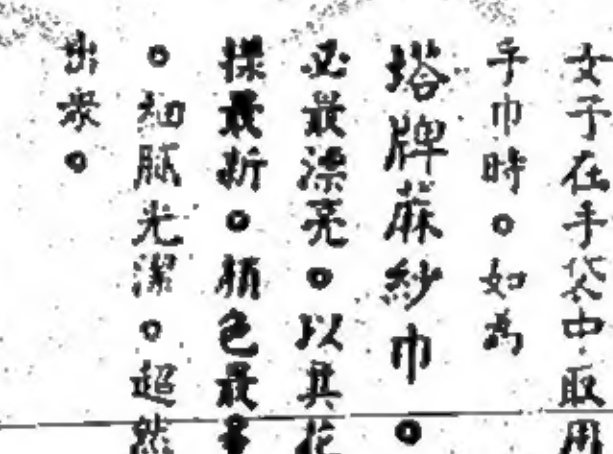 女子在手袋中取用
手巾時。如為
塔牌蔴紗巾。
必最漂亮。以其花
樣最新。顏色最多
。細膩光潔。超然
出衆。